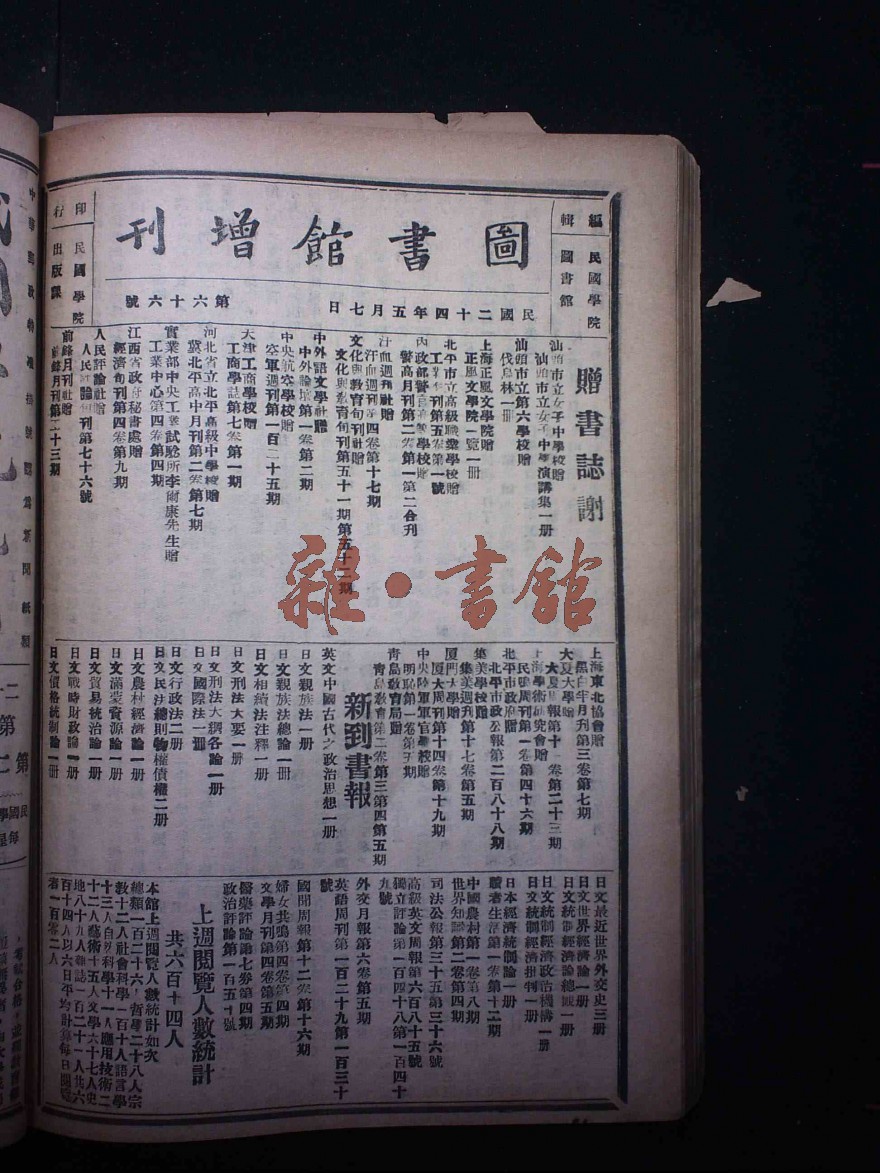 圖書館增刊
編輯 民國學院圖書館
印行 民國學院出版課
民國二十四年五月七日
第六十六號
贈書誌謝
汕頭市立女子中學校贈
汕頭市立女子中學演講集一册
汕頭市立第六學校贈
伐烏林一册
上海正風文學院贈
正風文學院一覽一册
北平市立高級職業學校贈
工業月刊第五卷第一號
內政部警官高等學校贈
警高月刊第二卷第一第二合刊
汗血週刊社贈
汗血週刊第四卷第十七期
文化與教育旬刊社贈
文化與教育旬刊第五十一期第五十二期
中外語文學社贈
中外論壇第一卷第二期
中央航空學校贈
空軍週刊第一百二十五期
天津工商學校贈
工商學誌第七卷第一期
河北省立北平高級中學校贈
冀北平高中月刊第二卷第七期
實業部中央工業試驗所李爾康先生贈
工業中心第四卷第四期
江西省政府秘書處贈
經濟旬刊第四卷第九期
人民評論社贈
人民評論旬刊第七十六號
前鋒月刊社贈
前鋒月刊第二十三期
上海東北協會贈
黑白半月刊第三卷第七期
大夏大學贈
大夏週報第十一卷第二十三期
上海學術研究會贈
民鳴周刊第一卷第四十六期
北平市政府贈
北平市政公報第二百八十八期
集美學校贈
集美週刊第十七卷第五期
廈門大學贈
廈大周刊第十四卷第十九期
中央陸軍軍官學校贈
明恥第一卷第五期
青島教育局贈
青島教育第二卷第三第四第五期
新到書報
英文中國古代之政治思想一册
日文親族法一册
日文親族法總論一册
日文相續法注釋一册
日文刑法大要一册
日文刑法大綱各論一册
日文國際法一冊
日文行政法二册
日文民法總則物權債權二册
日文農村經濟論一册
日文滿蒙資源論一册
日文貿易統治論一册
日文戰時財政論一册
日文價格統制論一册
日文最近世界外交史三册
日文世界經濟論一册
日文統制經濟論總觀一册
日文統制經濟政治機構一册
日文統制經濟批判一册
日本經濟統制論一册
讀者生活第一卷第十二期
中國農村第一卷第八期
世界知識第二卷第四期
司法公報第三十五第三十六號
高級英文周報第六百八十五號
獨立評論第一百四十八第一百四十九號
外交月報第六卷第五期
英語周刊第一百二十九第一百三十號
國聞周報第十二卷第十六期
婦女共鳴第四卷第四期
文學月刊第四卷第五期
醫藥評論第七券第四期
政治評論第一百五十號
上週閱覽人數統計
共六百十四人
本館上週閱覽人數統計如次
總類一百二十六，哲學二十八人宗
教十二人社會科學一百十人語言學
十三人自然科學十一人應用技術二
十二人藝術十五人文學六十七人史
地八十九人雜誌一百二十一人共六
百十四人以六日平均計算每日閱覽
者一百零二人
雜·書館